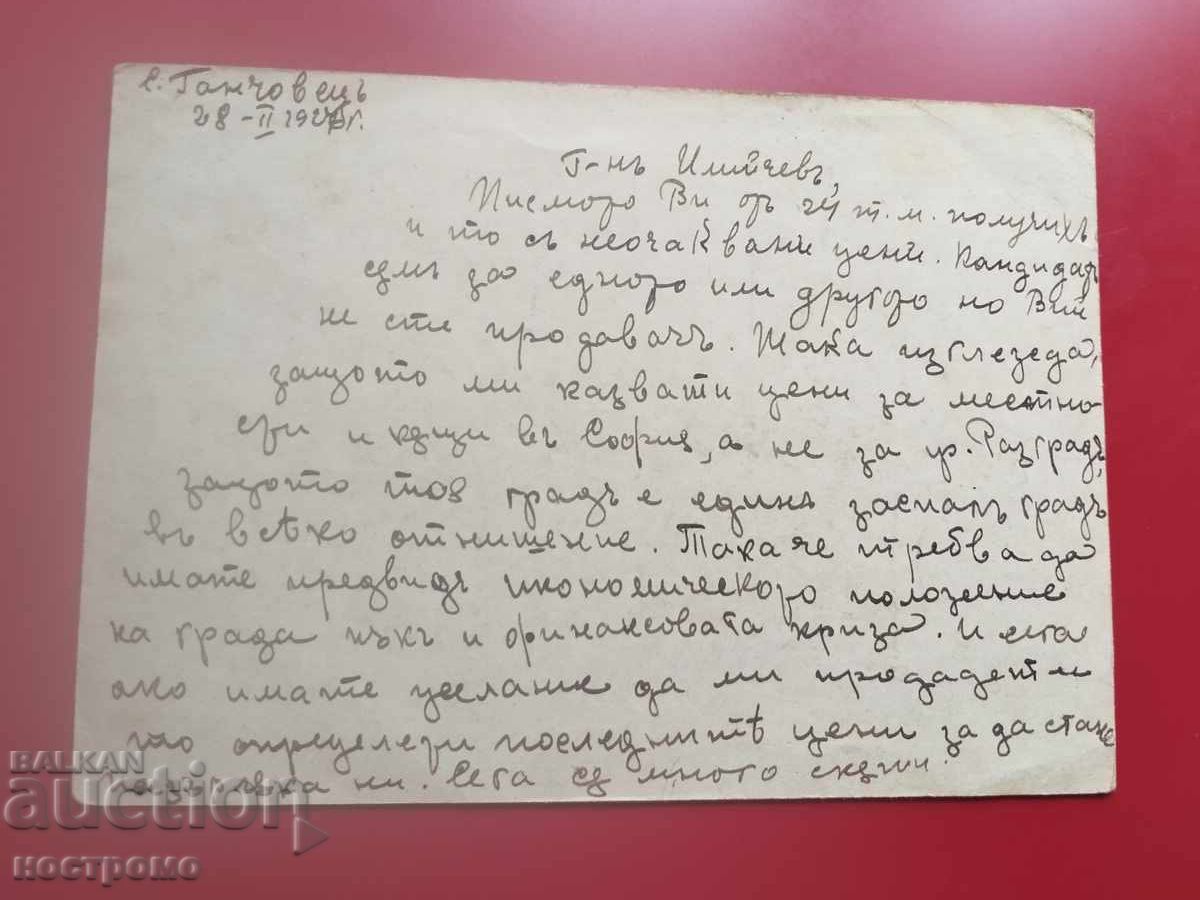 с. Ганчовецъ
28 - II 192 г.
Г-нъ Илийчевъ,
Писмото Ви отъ 24 т. м. получихъ
и то съ неочаквани цени. Кандидатъ
съмъ за едното или другото но Вий
не сте продавачъ. Така изглежда,
защото ми казвати цени за местно-
сти и къщи въ София, а не за гр. Разградъ,
защото тоя градъ е единъ заспалъ градъ
въ всѣко отншение. Така че требва да
имате предвидъ икономическото положение
на града пъкъ и финансовата криза. И сега
ако имате желание да ми продадете
то определети последнитѣ цени за да стане
ни. Сега са много скъпи.
BALKAN
auction
ностромо